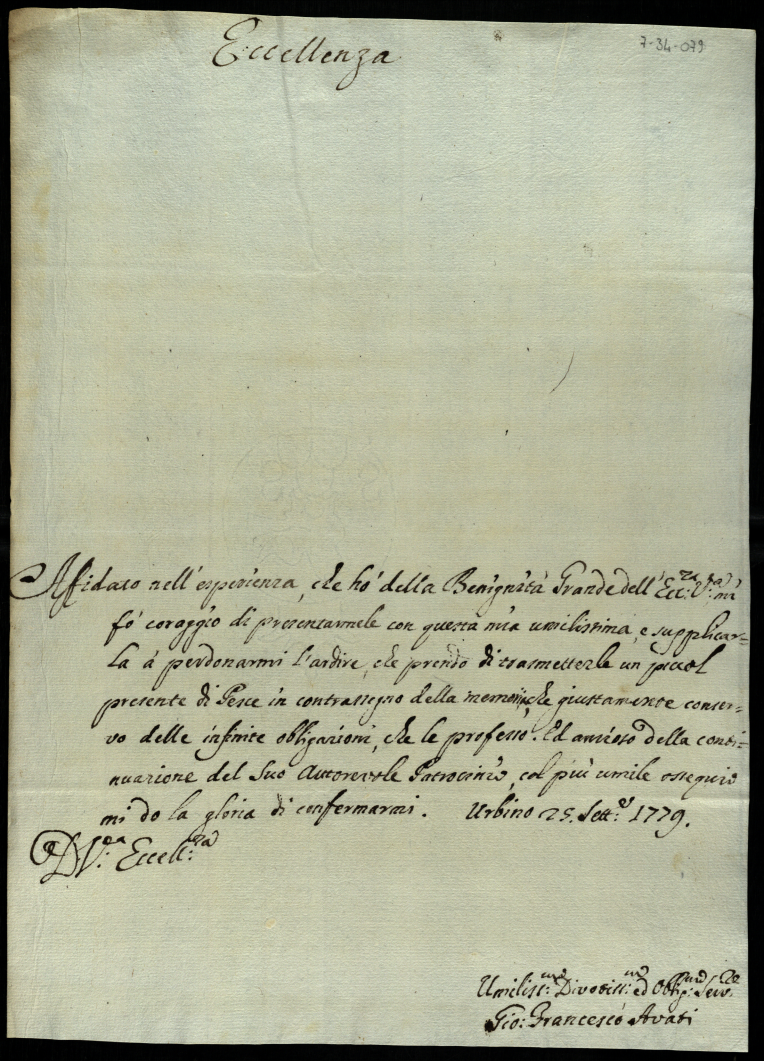 7-34-079
Eccellenza
Affidato nell'esperienza, che hò della Benignità Grande dell'Ecc:za V:ra mi
fò coraggio di presentarmele con questa mia umilissima, e supplicar=
la à perdonarmi l'ardire, che prendo di trasmetterle un piccol
presente di Pesce in contrassegno della memoria, che giustamente conser=
vo delle infinite obligazioni, che le professo. Ed ansioso della conti=
nuazione del Suo Autorevole Patrocinio, col più umile ossequio
mi do la gloria di confermarmi. Urbino 25. Sett:e 1779.
D. V:ra Eccell:za
Umiliss:mo Divotiss:mo ed Oblig:mo Serv:re
Gio: Francesco Avati